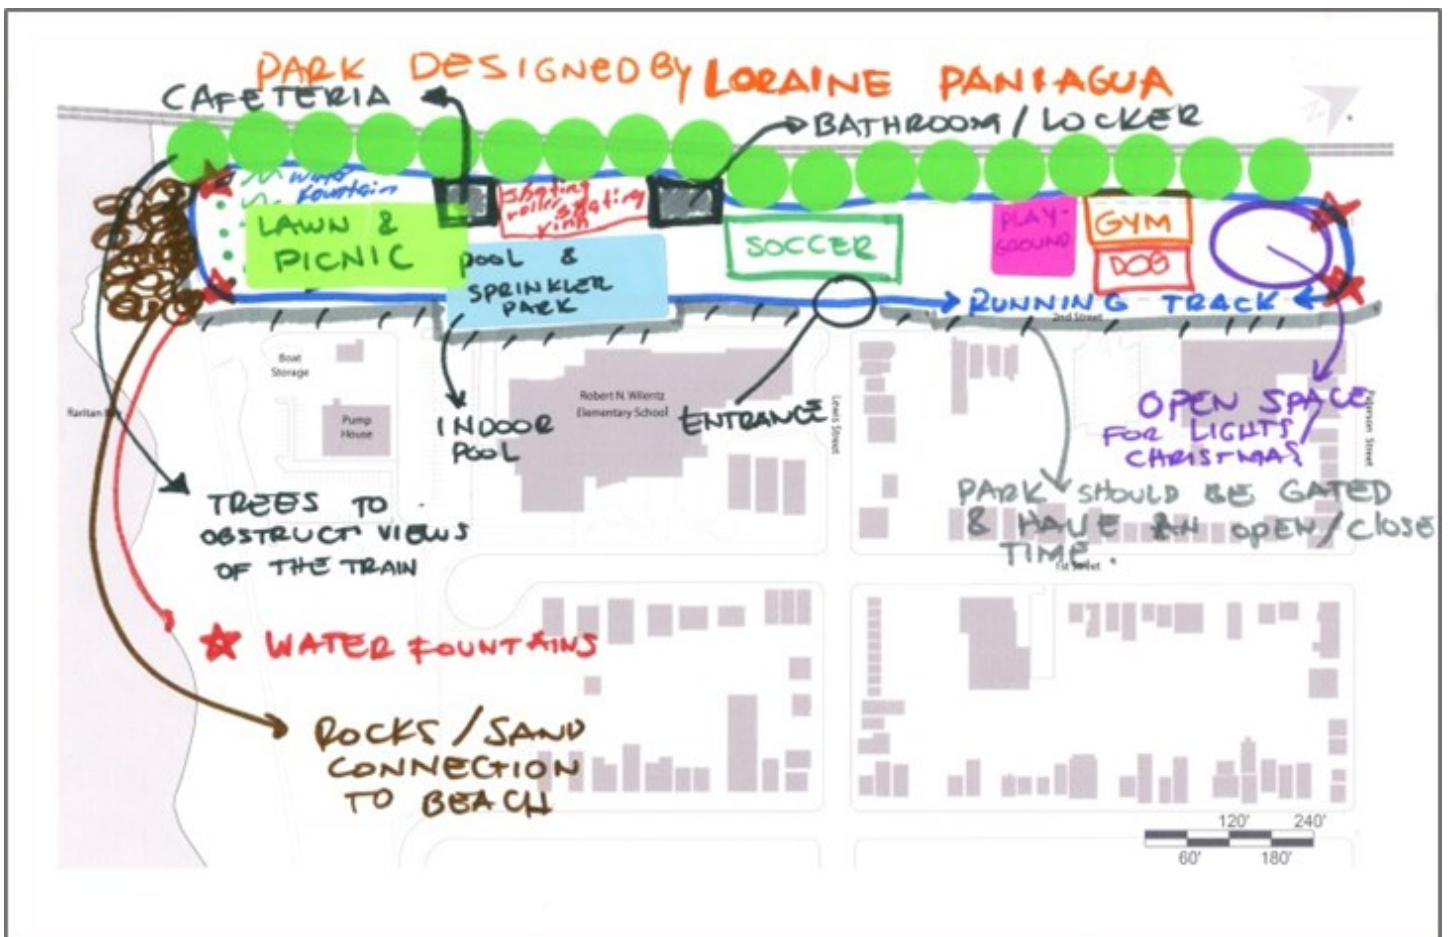 PARK DESIGNED BY LORAINE PANIAGUA
CAFETERIA
BATHROOM / LOCKER
WATER
FOUNTAIN
LAWN &
PICNIC
skating
roller skating
rink
POOL &
SPRINKLER
PARK
SOCCER
PLAY-
GROUND
GYM
DOG
RUNNING TRACK
2nd Street
Boat
Storage
Raritan Bay
Pump
House
INDOOR
POOL
Robert N. Wilentz
Elementary School
ENTRANCE
Lewis Street
OPEN SPACE
FOR LIGHTS
CHRISTMAS
Paterson Street
PARK SHOULD BE GATED
& HAVE AN OPEN/CLOSE
TIME.
1st Street
TREES TO
OBSTRUCT VIEWS
OF THE TRAIN
WATER FOUNTAINS
ROCKS / SAND
CONNECTION
TO BEACH
120' 240'
60' 180'